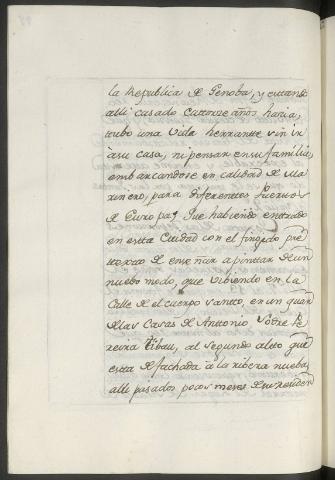 la Republica de Genoba, y estando
alli casado catorze años havia,
tubo una vida herrante sin ir
â su casa, ni pensar en su familia,
embarcandose en calidad de Ma
rinero, para diferentes puertos
de Europa; Que habiendo entrado
en esta Ciudad con el fingido pre
texto de enseñar a pintar de un
nuebo modo, que vibiendo en la
Calle de el cuerpo santto, en un quar
de las Casas de Antonio Sodre Pe
reira Tibau, al segundo alto que
esta de fachada â la ribera nueba,
alli pasados pocos meses de su residen